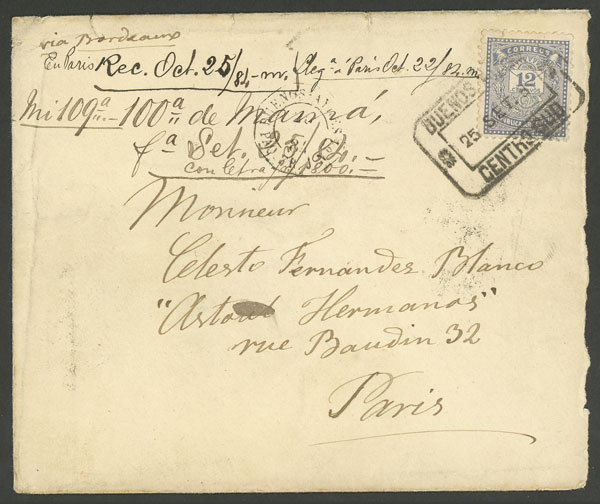 via Bordeaux
En Paris Rec. Oct. 25/84-m. Lleg.ª á Paris Oct. 22/84. m.
Mi 109.ª 100ª de Mamá,
fª Set.
con letra 800.-
CORREOS
12
BUENOS
25 SET.
CENTRO SUD
BUENOS AIRES
Monsieur
Celesto Fernandez Blanco
"Astoul Hermanos"
rue Baudin 32
Paris